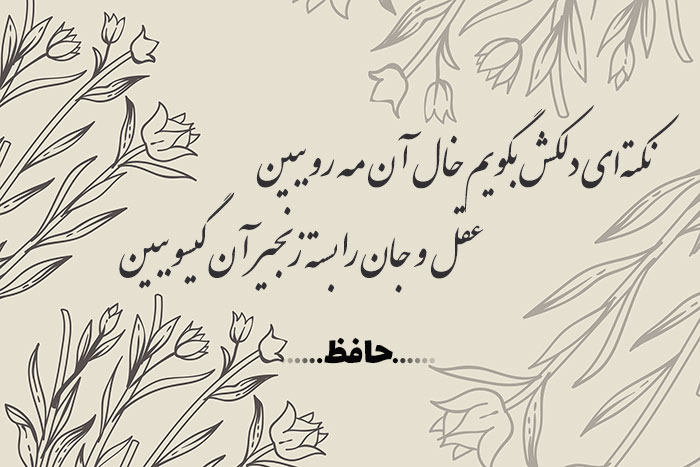 نکته‌ای دلکش بگویم خال آن مه رو ببین
عقل و جان را بسته زنجیر آن گیسو ببین
......حافظ......